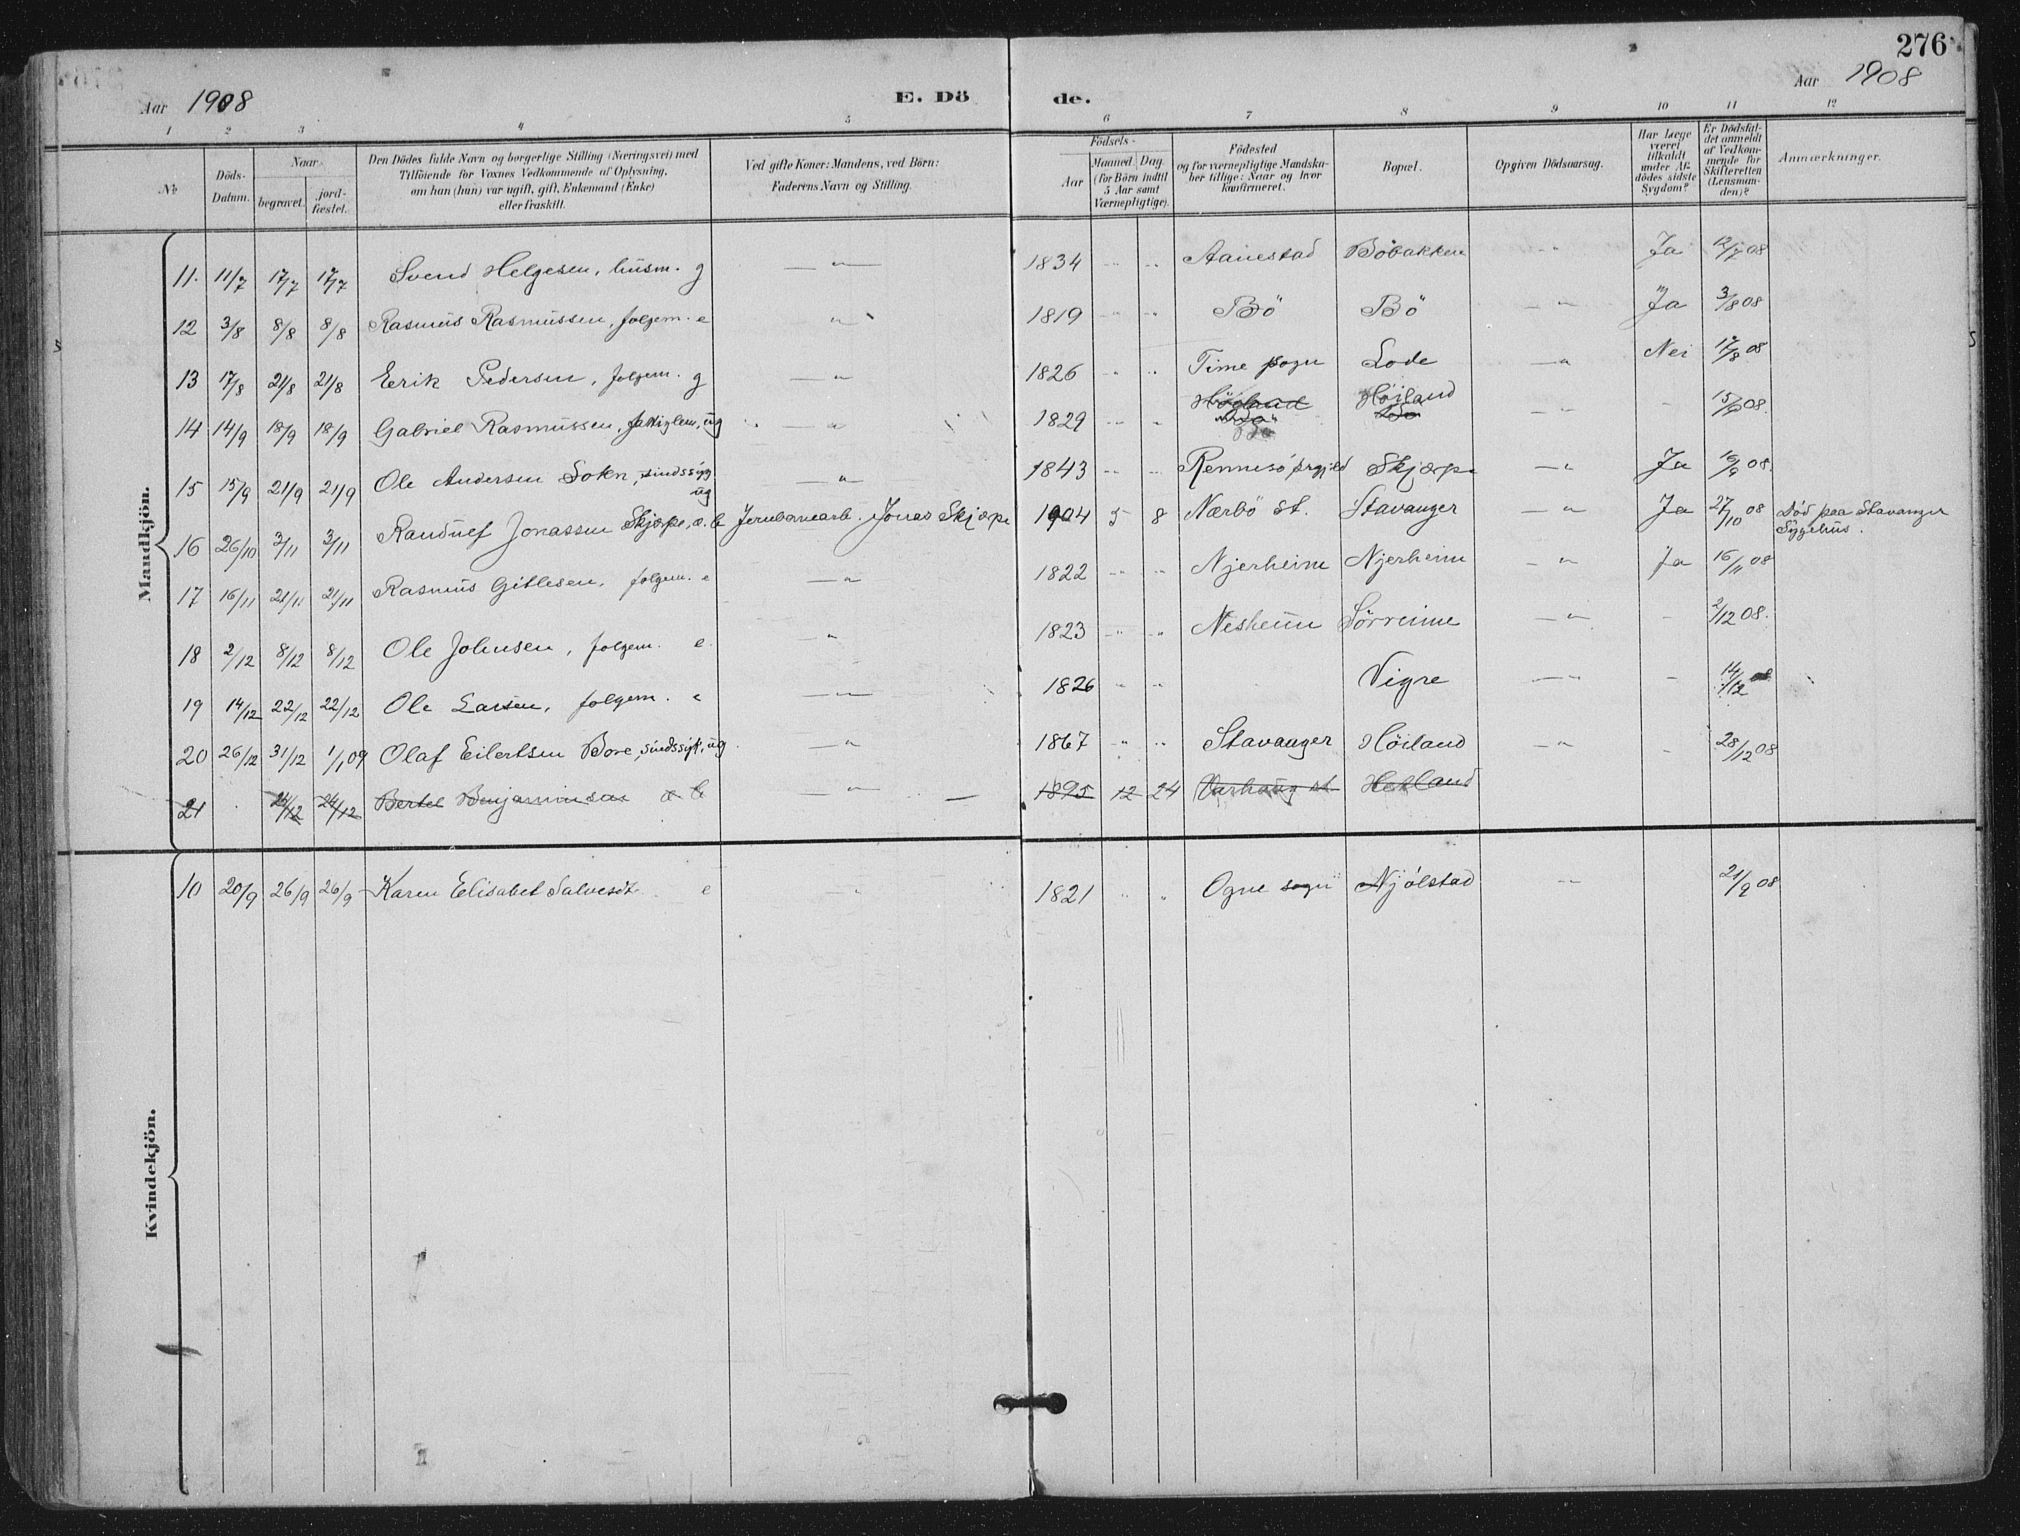 276
Aar 1908 E. Dö de. Aar 1908
1 2 3 4 5 6 7 8 9 10 11 12
№
Döds-Datum.
Naar
begravet.
jord-fæstet.
Den Dödes fulde Navn og borgerlige Stilling (Næringsvei) med
Tilföiende for Voxnes Vedkommende af Oplysning,
om han (hun) var ugift, gift, Enkemand (Enke)
eller fraskilt.
Ved gifte Koner: Mandens, ved Börn:
Faderens Navn og Stilling.
Födsels-
Aar
Maaned Dag
(for Börn indtil
5 Aar samt
Værnepligtige).
Födested
og for værnepligtige Mandska-
ber tillige: Naar og hvor
konfirmeret.
Bopæl.
Opgiven Dödsaarsag.
Har Læge
været
tilkaldt
under Af-
dödes sidste
Sygdom?
Er Dödsfal-
det anmeldt
af Vedkom-
mende for
Skifteretten
(Lensman-
den)?
Anmærkninger.
Mandkjön.
11. 11/7 17/7 17/7 Svend Helgesen, husm. g — " — 1834 " " Aanestad Böbakken " Ja 12/7 08
12 3/8 8/8 8/8 Rasmus Rasmussen, folgem. e " 1819 " " Bö Bö " Ja 3/8 08
13 17/8 21/8 21/8 Eerik Pedersen, folgem. g — " 1826 " " Time sogn Lode — " Nei 17/8 08
14 14/9 18/9 18/9 Gabriel Rasmussen, fattiglem, ug — " 1829 " Höiland 15/9 08.
15 15/9 21/9 21/9 Ole Andersen Sokn, sindssyg ug — " 1843 " " Rennesö prgjeld Skjærpe — " Ja 16/9 08.
16 26/10 3/11 3/11 Randulf Jonassen Skjærpe, æ. b Jernbanearb. Jonas Skjærpe 1904 5 8 Nærbö st. Stavanger — " Ja 27/10 08 Död paa Stavanger
Sygehus.
17 16/11 21/11 21/11 Rasmus Gitlesen, folgem. e — " 1822 " " Njerheim Njerheim — " Ja 16/11 08
18 2/12 8/12 8/12 Ole Johnsen, folgem. e. — " 1823 " " Nesheim Sörreime — " - 2/12 08.
19 14/12 22/12 22/12 Ole Larsen, folgem. e — " — 1826 " " Vigre — " - 14/12 08
20 26/12 31/12 1/1 09 Olaf Eilertsen Bore, sindssyk, ug — " 1867 " " Stavanger Höiland — " - 28/12 08
21 24/12 24/12 Bertel Benjaminsen æ b — " — 1895 12 24 Varhaug st Hetland
Kvindekjön.
10 20/9 26/9 26/9 Karen Elisabet Salvesdt. e " 1821 " " Ogne sogn Njølstad — 21/9 08